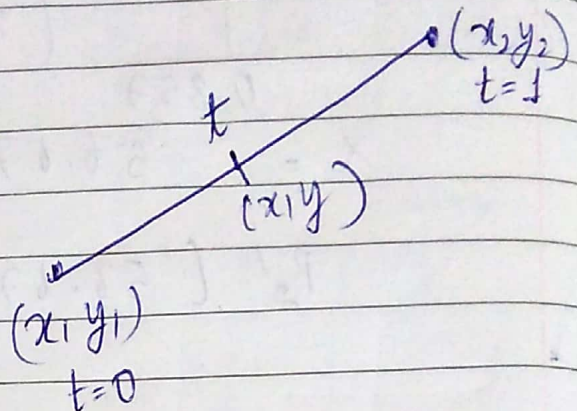 (x₂ y₂)
t=1
t
(x, y)
(x₁ y₁)
t=0